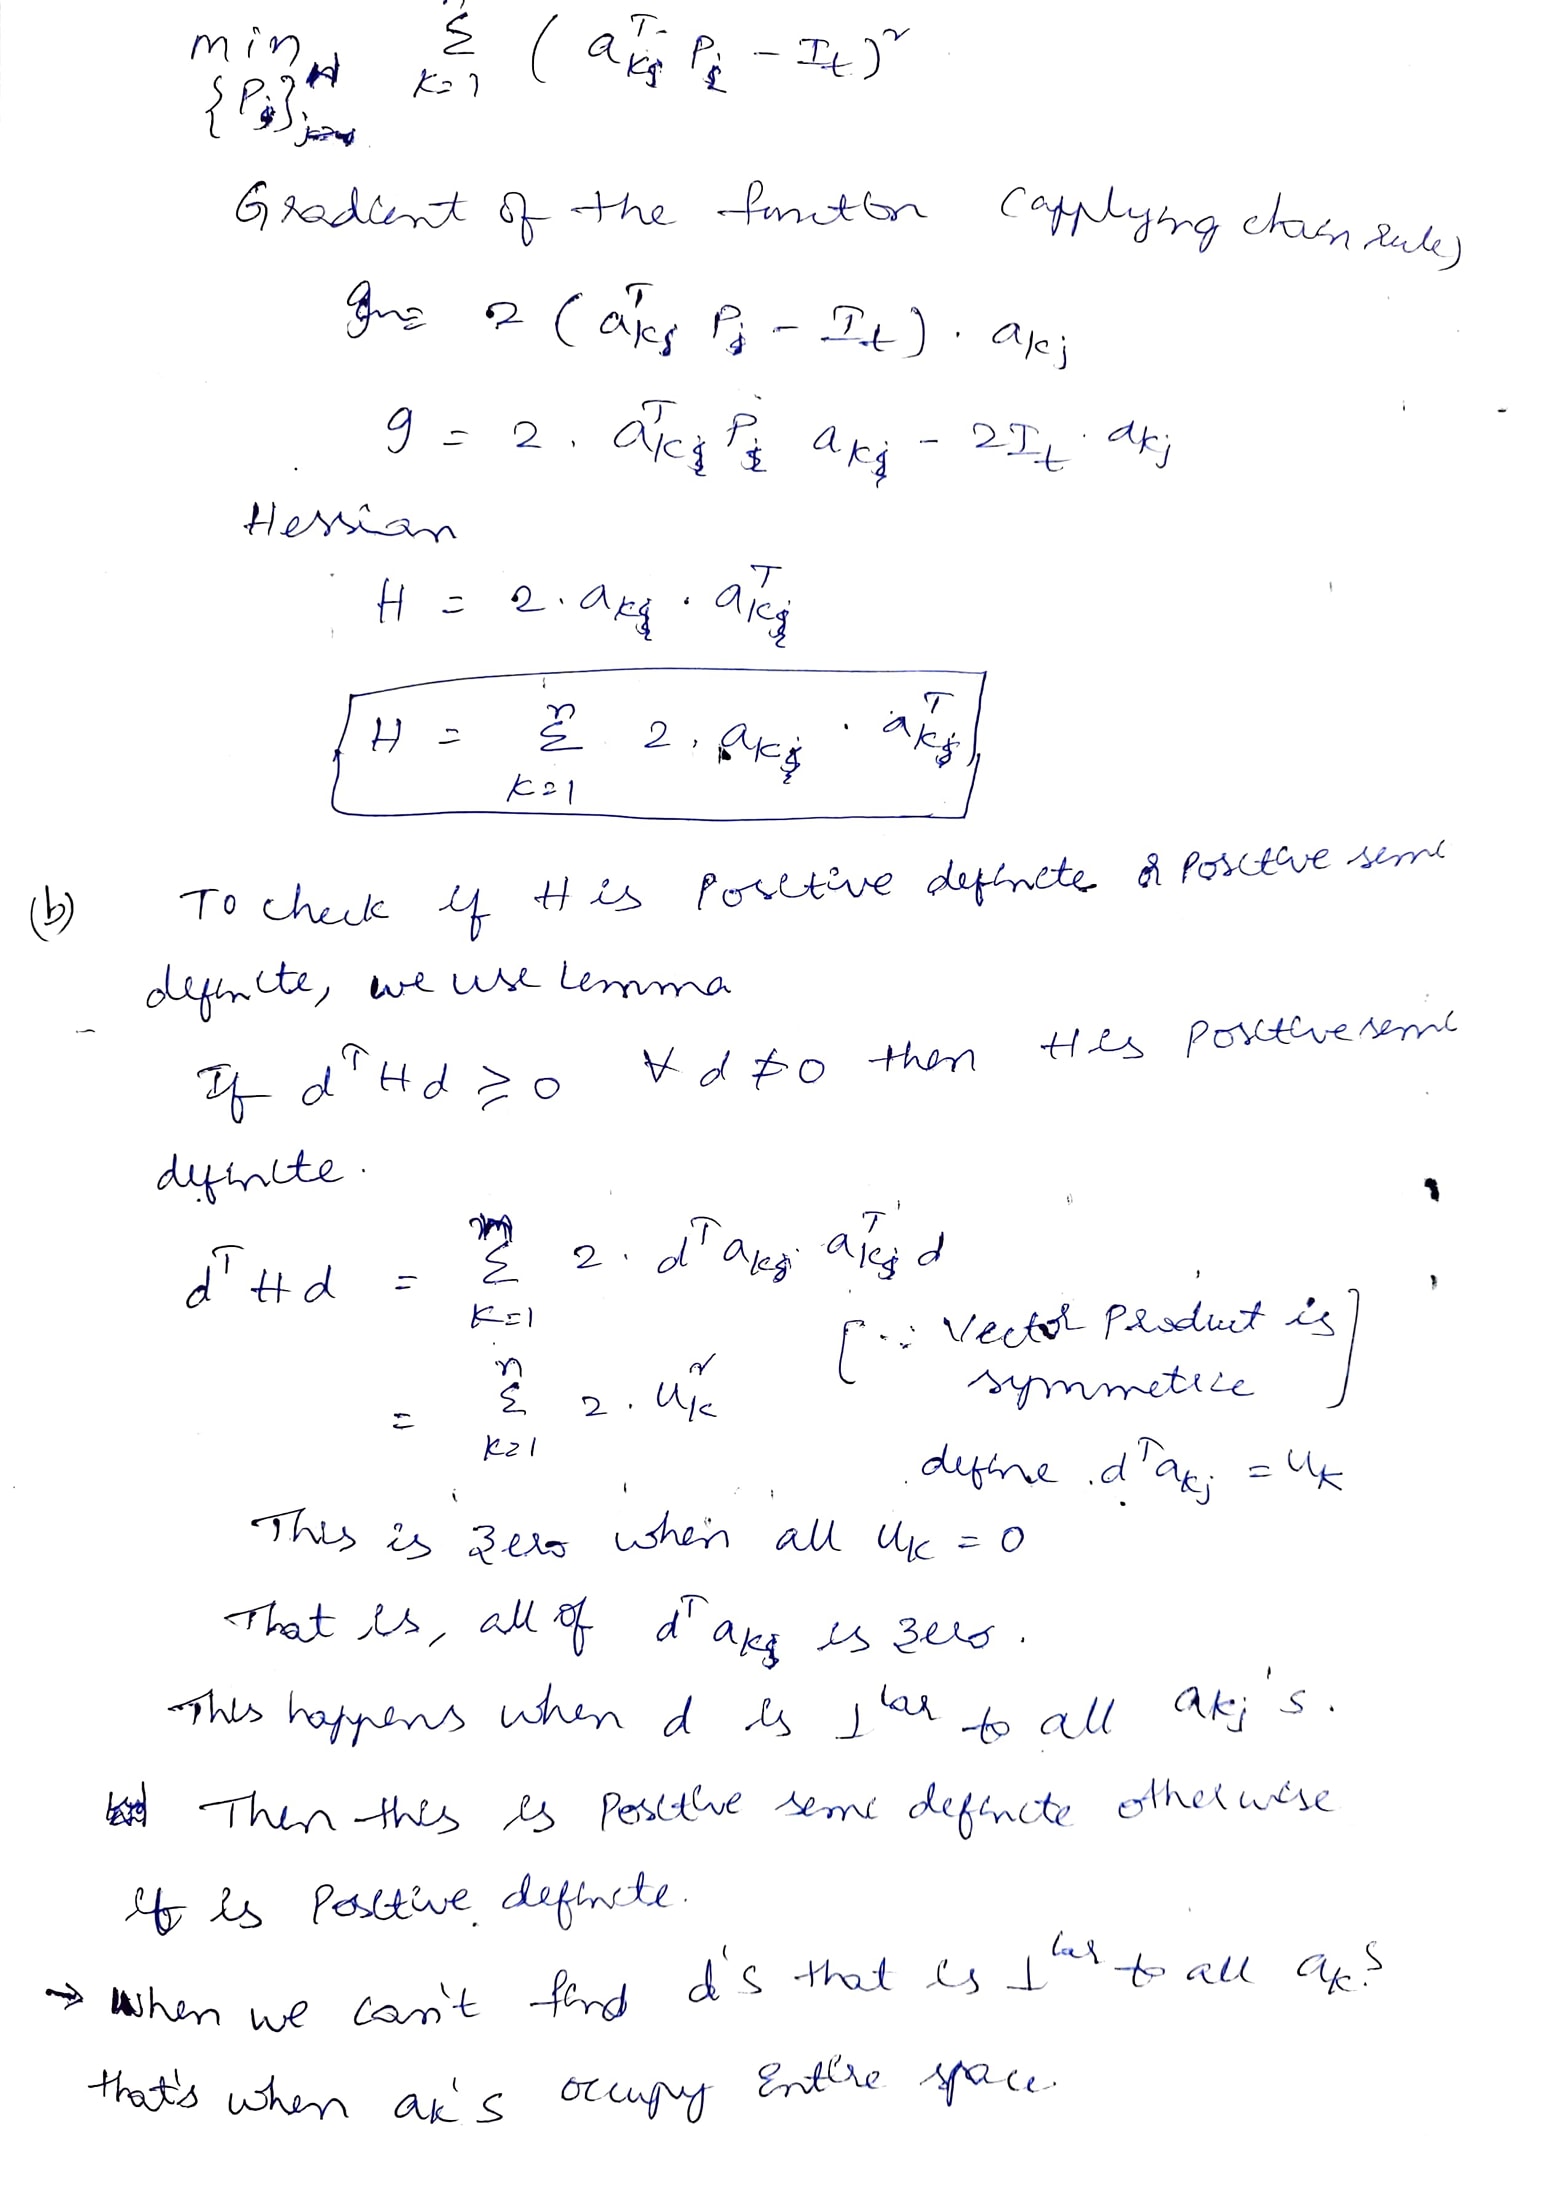 min Σ ( aᵀkj Pj - It )²
{Pj} K=1
Gradient of the function (applying chain rule)
g = 2 ( aᵀkj Pj - It ) . akj
g = 2 . aᵀkj Pj akj - 2It . akj
Hessian
H = 2 . akj . aᵀkj
H = Σ 2 . akj . aᵀkj
n
K=1
(b) To check if H is Positive definite or Positive semi
definite, we use Lemma
If dᵀHd ≥ 0 ∀ d ≠ 0 then H is Positive semi
definite.
dᵀHd = Σ 2 . dᵀakj aᵀkj d
K=1
[∵ Vector Product is
symmetric]
n
= Σ 2 . uk²
K=1
define dᵀakj = uk
This is zero when all uk = 0
That is, all of dᵀakj is zero.
This happens when d is ⊥lar to all akj's.
Then this is Positive semi definite otherwise
it is Positive definite.
→ When we can't find d's that is ⊥lar to all ak's
that's when ak's occupy Entire space.